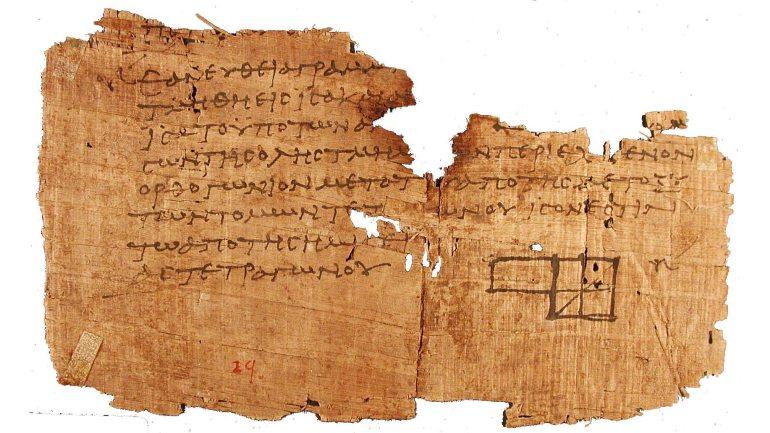 ΕΑΝ ΕΥΘΕΙΑ ΓΡΑΜΜ
ΤΜΗΘΗ ΕΙΣ ΙΣΑ
ΙΣΑ ΤΟ ΥΠΟ ΤΩΝ Α
ΙΣΩΝ ΤΗΣ ΟΛΗΣ ΤΜΗ ΩΝ ΠΕΡΙΕΧ ΜΕΝΟΝ
ΟΡΘΟΓΩΝΙΟΝ ΜΕΤΑ Τ Υ ΑΠΟ ΤΗΣ ΜΕΤΟΞΥ
ΤΩΝ ΤΟΜΩΝ ΤΕΤ ΩΝΟΥ ΙΣΟΝ ΕΣΤΙΝ
ΤΩ ΑΠΟ ΤΗΣ ΗΜΙΣΕΙ
ΑΣ ΤΕΤΡΑΓΩΝΟΥ
29